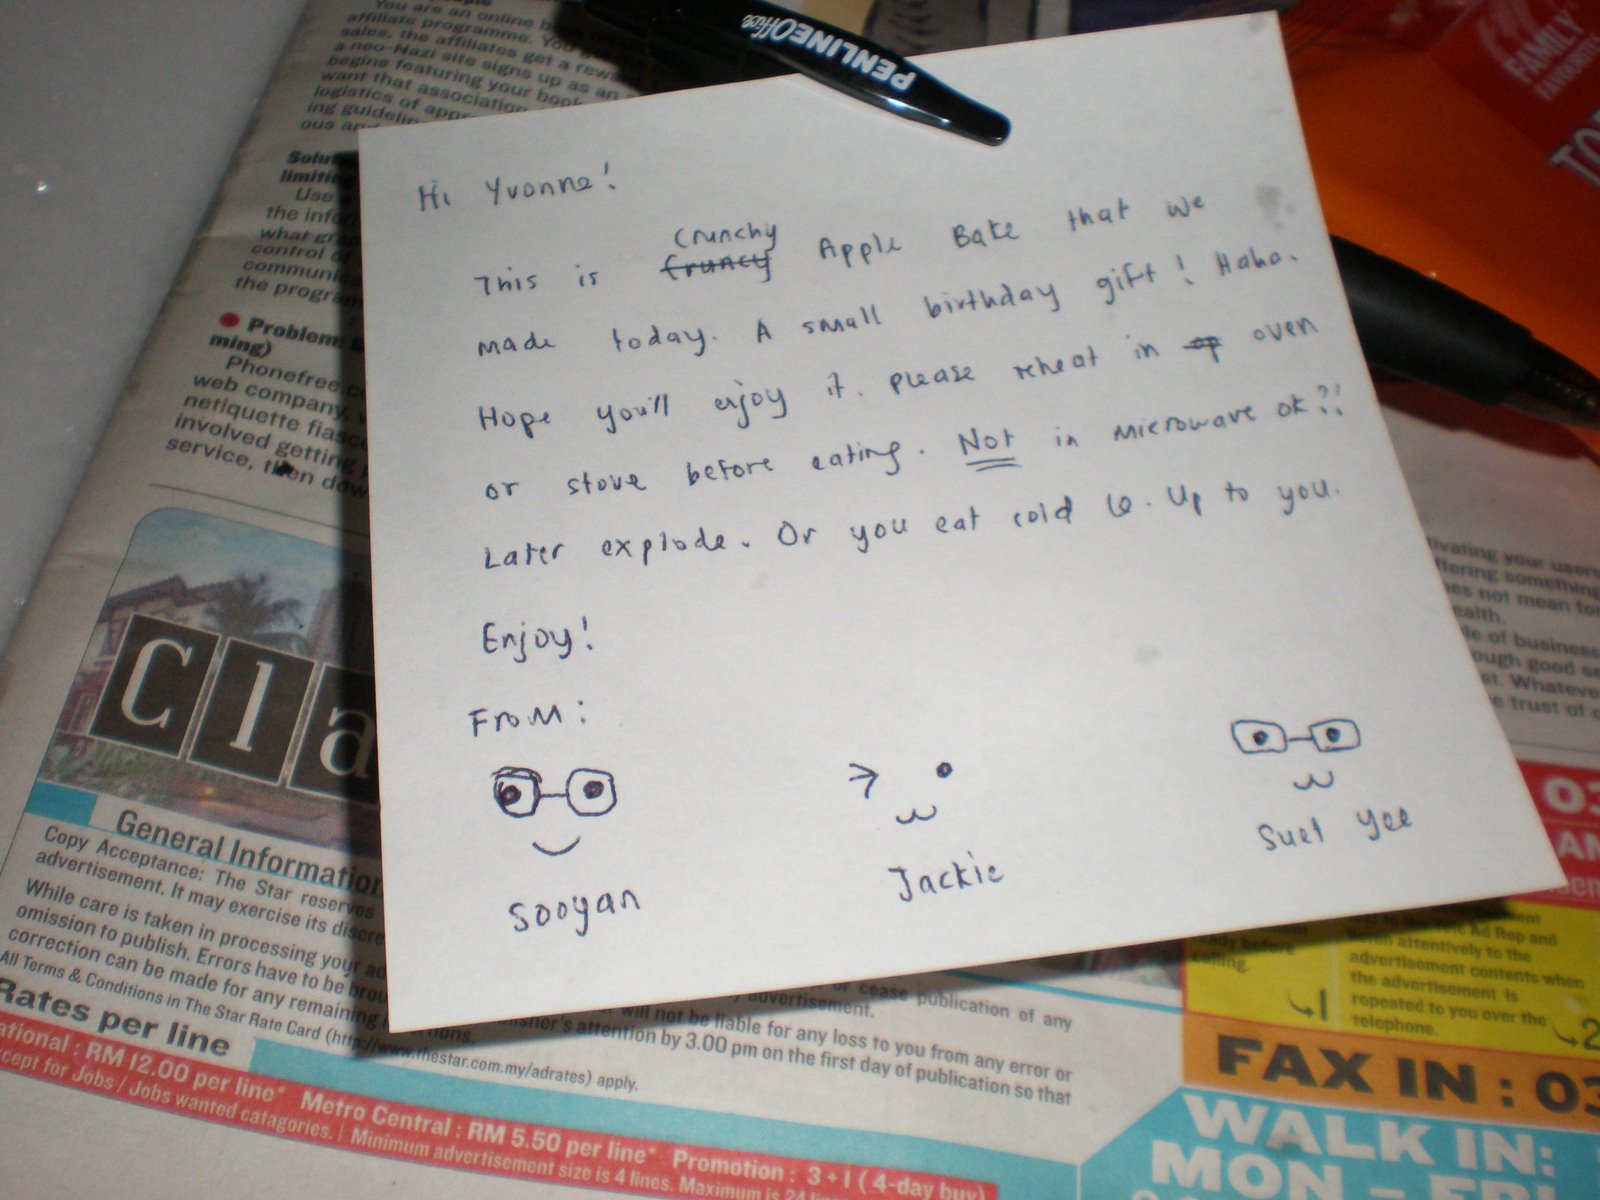 You are an online b
affiliate programme. You g
sales, the affiliates get a rew
a neo-Nazi site signs up as an
begins featuring your book
want that association
logistics of appr
ing guidelin
ous an
limiti
Use
the info
what gra
control o
communi
the progra
Problem:
ming)
Phonefree.c
web company,
netiquette fiasc
involved getting
service, then dow
PENLINE Office
FAMILY
Hi Yvonne!
Crunchy
This is Cruncy Apple Bake that we
made today. A small birthday gift! Haha.
Hope you'll enjoy it. please reheat in oven
or stove before eating. Not in microwave ok?!
Later explode. Or you eat cold lo. Up to you.
Enjoy!
From:
Sooyan
Jackie
Suet Yee
Cla
General Information
Copy Acceptance: The Star reserves
advertisement. It may exercise its discre
While care is taken in processing your ad
omission to publish. Errors have to be brou
correction can be made for any remaining
All Terms & Conditions in The Star Rate Card (http://www.thestar.com.my/adrates) apply.
cease publication of any
advertisement.
will not be liable for any loss to you from any error or
attention by 3.00 pm on the first day of publication so that
Rates per line
ational : RM 12.00 per line* Metro Central : RM 5.50 per line* Promotion : 3 + 1 ( 4-day buy)
xcept for Jobs / Jobs wanted catagories. | Minimum advertisement size is 4 lines. Maximum is 24
tivating your users
ffering something
es not mean for
ealth.
le of business
ough good se
st. Whateve
e trust of c
03
AM
ady before
calling.
1
to the Tele Ad Rep and
listen attentively to the
advertisement contents when
the advertisement is
repeated to you over the
telephone.
2
FAX IN : 03
WALK IN:
MON - FRI